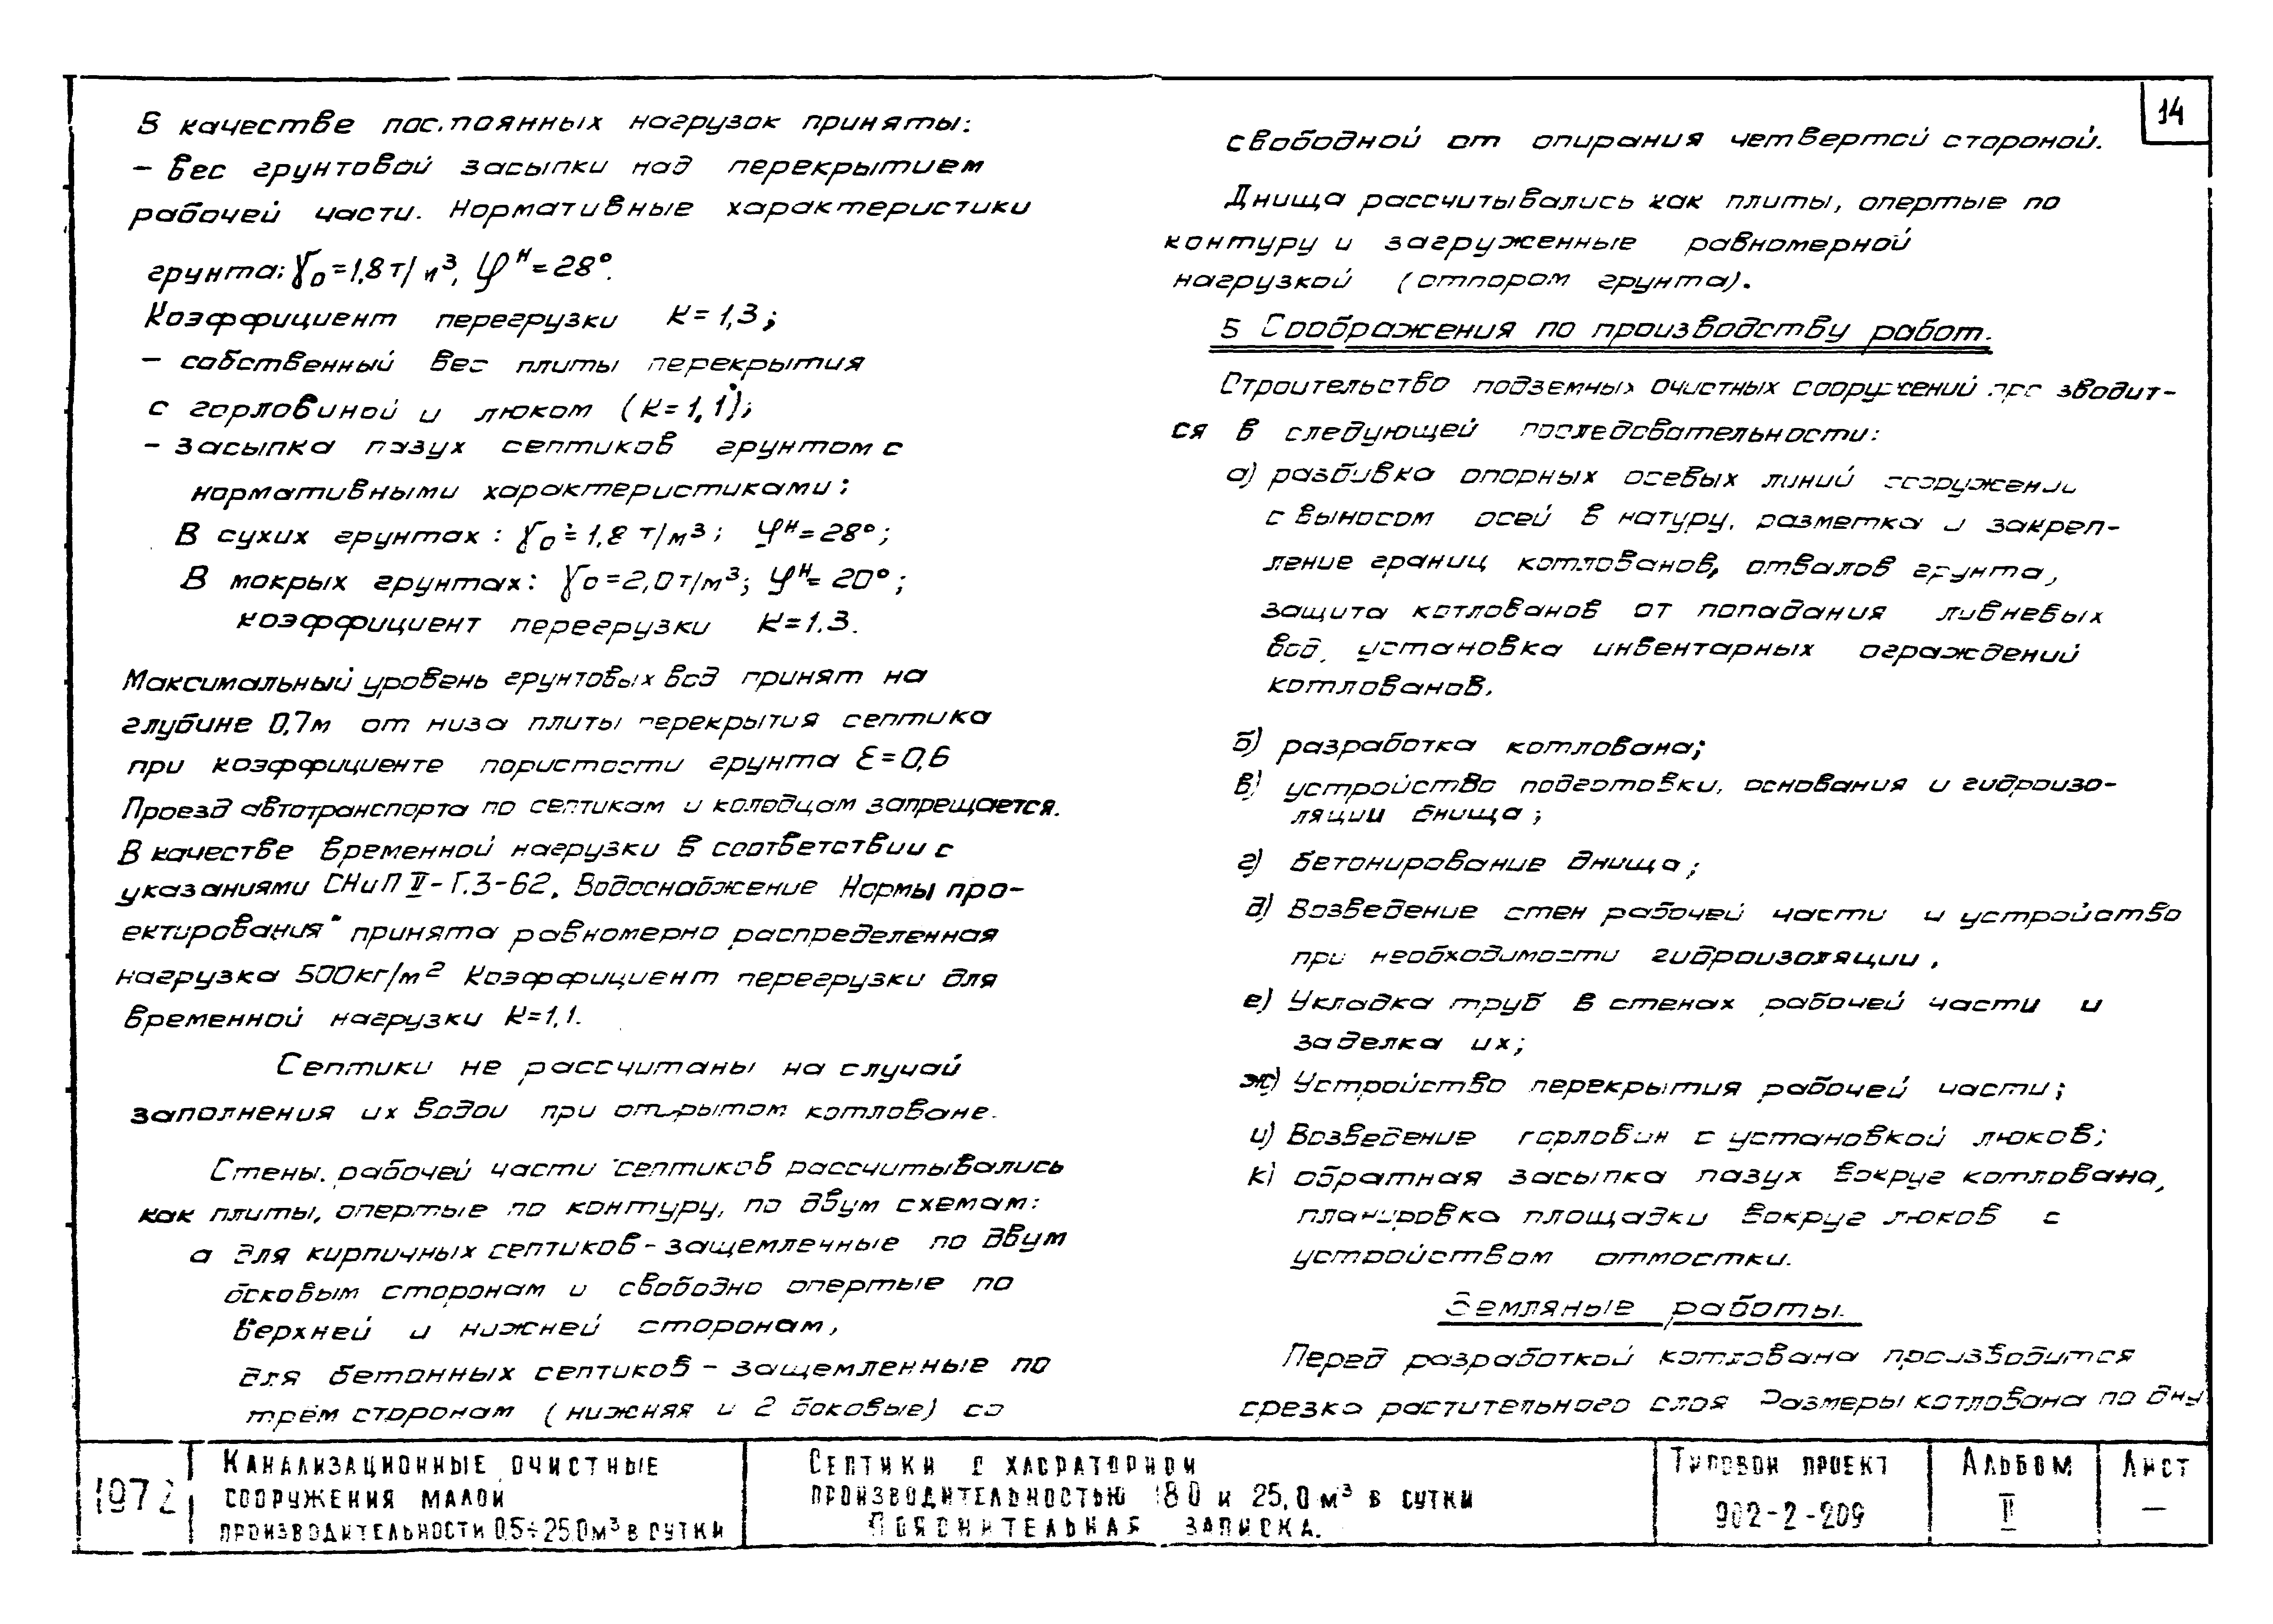 В качестве постоянных нагрузок приняты:
— вес грунтовой засыпки над перекрытием
рабочей части. Нормативные характеристики
грунта: γо=1,8т/м³, φᴴ=28°.
Коэффициент перегрузки К=1,3;
— собственный вес плиты перекрытия
с горловиной и люком (К=1,1);
— засыпка пазух септиков грунтом с
нормативными характеристиками:
В сухих грунтах: γо=1,8 т/м³; φᴴ=28°;
В мокрых грунтах: γо=2,0т/м³; φᴴ=20°;
коэффициент перегрузки К=1.3.
Максимальный уровень грунтовых вод принят на
глубине 0,7м от низа плиты перекрытия септика
при коэффициенте пористости грунта Ɛ=0,6
Проезд автотранспорта по септикам и колодцам запрещается.
В качестве временной нагрузки в соответствии с
указаниями СНиП II-Г.3-62. Водоснабжение Нормы про-
ектирования" принята равномерно распределенная
нагрузка 500кг/м² Коэффициент перегрузки для
временной нагрузки К=1,1.
Септики не рассчитаны на случай
заполнения их водой при открытом котловане.
Стены рабочей части септиков рассчитывались
как плиты, опертые по контуру, по двум схемам:
а для кирпичных септиков-защемленные по двум
боковым сторонам и свободно опертые по
верхней и нижней сторонам,
для бетонных септиков - защемленные по
трем сторонам (нижняя и 2 боковые) со
14
свободной от опирания четвертой стороной.
Днища рассчитывались как плиты, опертые по
контуру и загруженные равномерной
нагрузкой (отпором грунта).
5 Соображения по производству работ.
Строительство подземных очистных сооружений производит-
ся в следующей последовательности:
а) разбивка опорных осевых линий сооружении
с выносом осей в натуру, разметка и закреп-
ление границ котлованов, отвалов грунта,
защита котлованов от попадания ливневых
вод, установка инвентарных ограждений
котлованов.
б) разработка котлована;
в) устройство подготовки, основания и гидроизо-
ляции днища;
г) бетонирование днища;
д) Возведение стен рабочей части и устройство
при необходимости гидроизоляции.
е) Укладка труб в стенах рабочей части и
заделка их;
ж) Устройство перекрытия рабочей части;
и) Возведение горловин с установкой люков;
к) обратная засыпка пазух вокруг котлована,
планировка площадки вокруг люков с
устройством отмостки.
Земляные работы.
Перед разработкой котлована производится
срезка растительного слоя Размеры котлована по дну
1972
Канализационные очистные
сооружения малой
производительности 0.5÷25.0м³ в сутки
Септики с хлораторной
производительностью 18.0 и 25,0 м³ в сутки
Пояснительная записка.
Типовой проект
902-2-209
Альбом
II
Лист
—